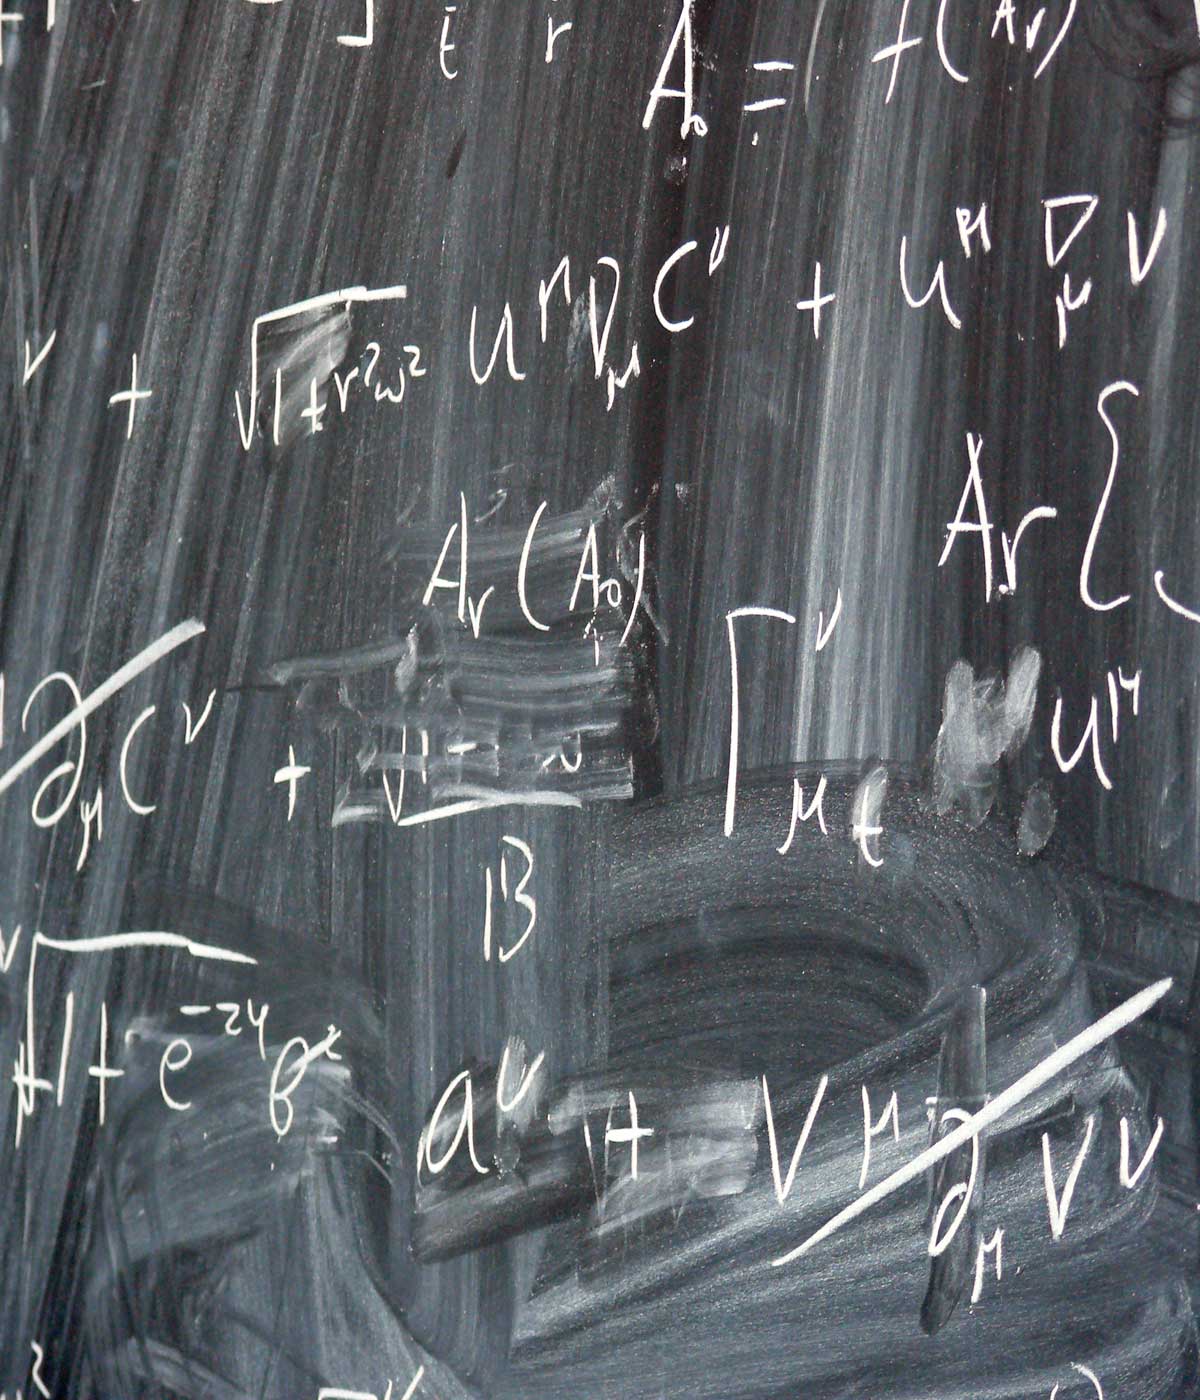 ] t r A₀ = f(Aᵣ)
ν + √(1+r²ω²) u^μ D_μ C^ν + u^μ D_μ ν
Aᵣ(A₀) Aᵣ {
∂_μ C^ν + √1- Γ^ν_μt u^μ
B
√1+e^-2φ a^ν + V^μ ∂_μ V^ν
2